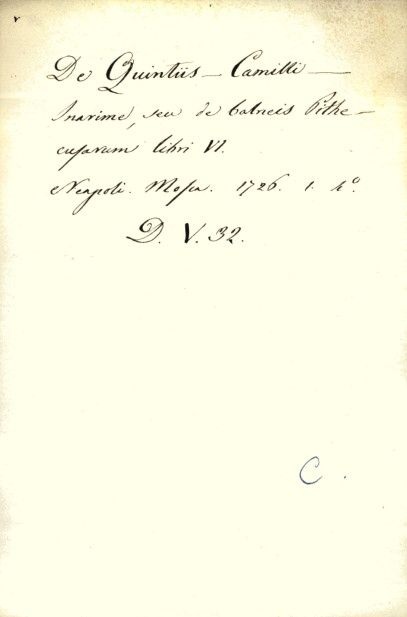 De Quintiis — Camilli —
Inarime, seu de balneis Pithe-
cusarum libri VI.
Neapoli. Mosca. 1726. 1. 4°.
D. V. 32.
C.